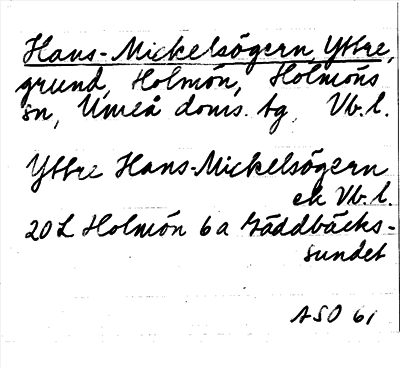 Hans-Mickelsögern, Yttre,
grund, Holmön, Holmöns
sn, Umeå doms. tg, Vb. l.
Yttre Hans-Mickelsögern
ek Vb. l.
20 L Holmön 6 a Gäddbäcks-
sundet
ASO 61